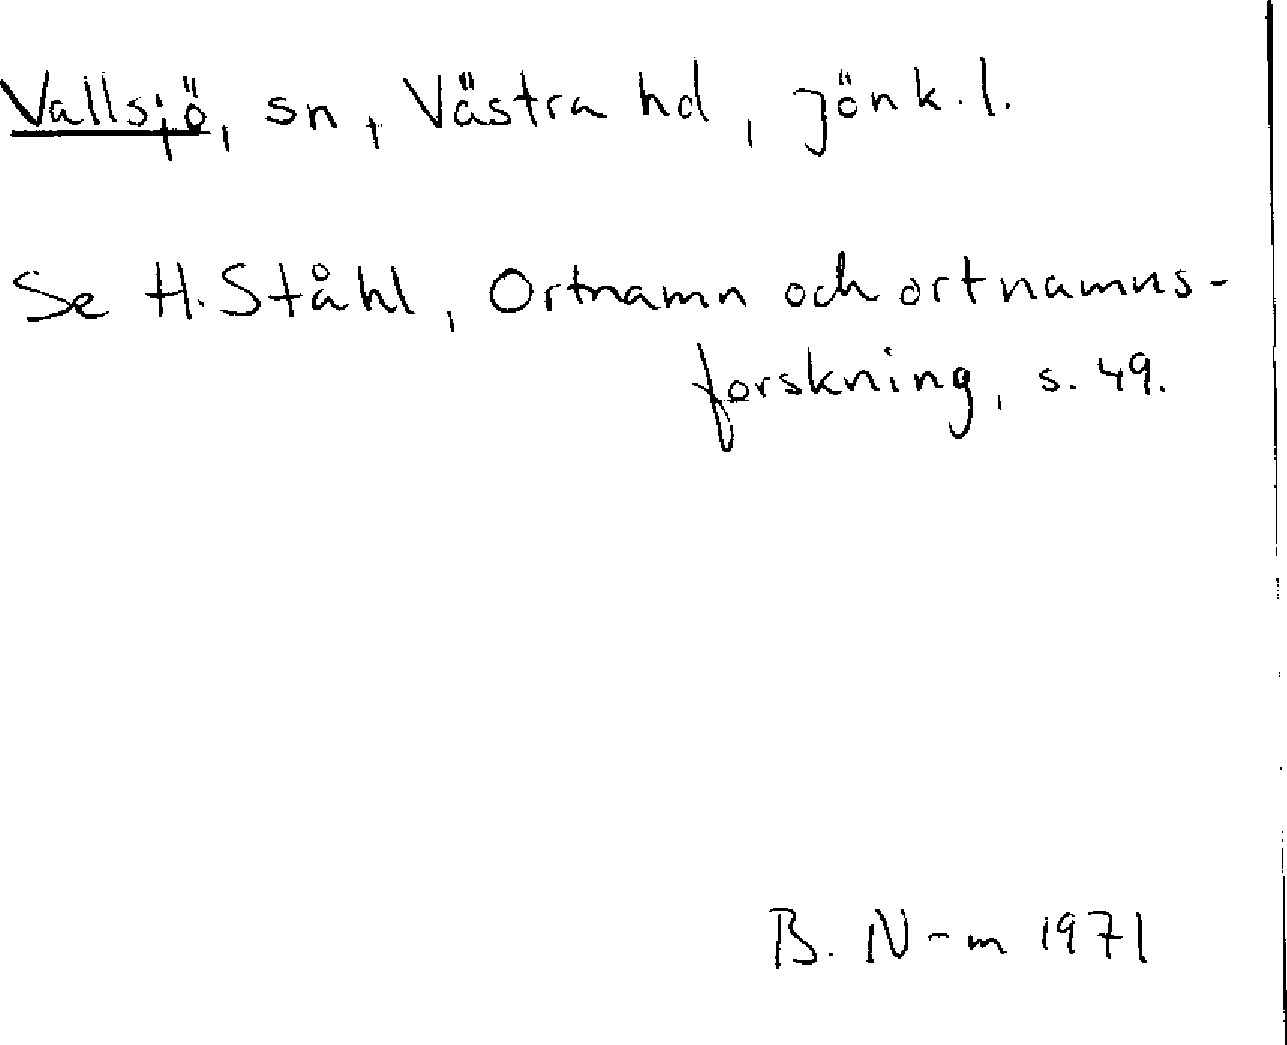 Vallsjö, sn, Västra hd, Jönk. l.
Se H. Ståhl, Ortnamn och ortnamns-
forskning, s. 49.
B. N-m 1971